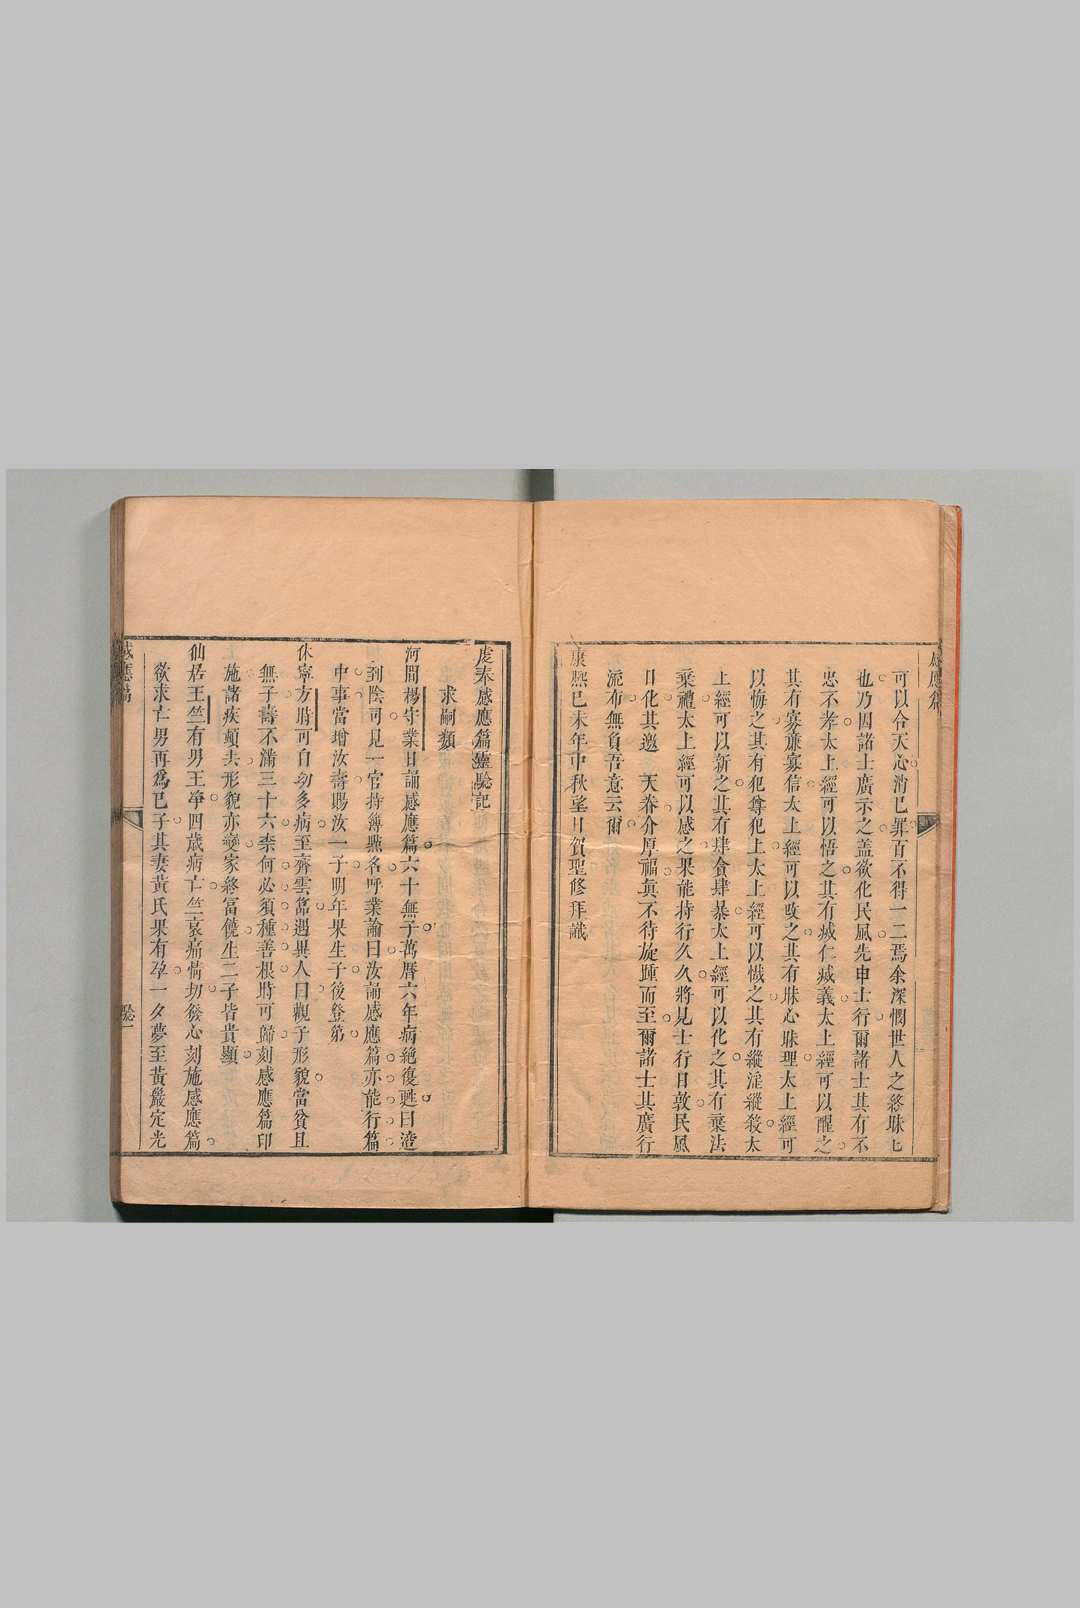 可以合天心消已罪百不得一二焉余深憫世人之終昧七
也乃因諸士廣示之蓋欲化民風先申士行爾諸士其有不
忠不孝太上經可以悟之其有滅仁滅義太上經可以醒之
其有寡廉寡信太上經可以改之其有昧心昧理太上經可
以悔之其有犯尊犯上太上經可以懺之其有縱淫縱殺太
上經可以新之其有肆貪肆暴太上經可以化之其有棄法
棄禮太上經可以感之果能持行久久將見士行日敦民風
日化其邀天眷介厚福真不待旋踵而至爾諸士其廣行
流布無負吾意云爾
康熙己未年中秋望日賀聖修拜識
虔奉感應篇靈驗記
求嗣類
河間楊守業日誦感應篇六十無子萬曆六年病絶復甦曰澄
到陰司見一官持簿點名呼業諭曰汝誦感應篇亦能行篇
中事當增汝壽賜汝一子明年果生子後登第
休寧方時可自幼多病至齊雲嵓遇異人曰觀子形貌當貧且
無子壽不滿三十六柰何必須種善根時可歸刻感應篇印
施諸疾頓去形貌亦變家終富饒生二子皆貴顯
仙居王竺有男王爭四歲病亡竺哀痛情切發心刻施感應篇
欲求亡男再爲已子其妻黃氏果有孕一夕夢至黃嚴定光
感應篇
驗一